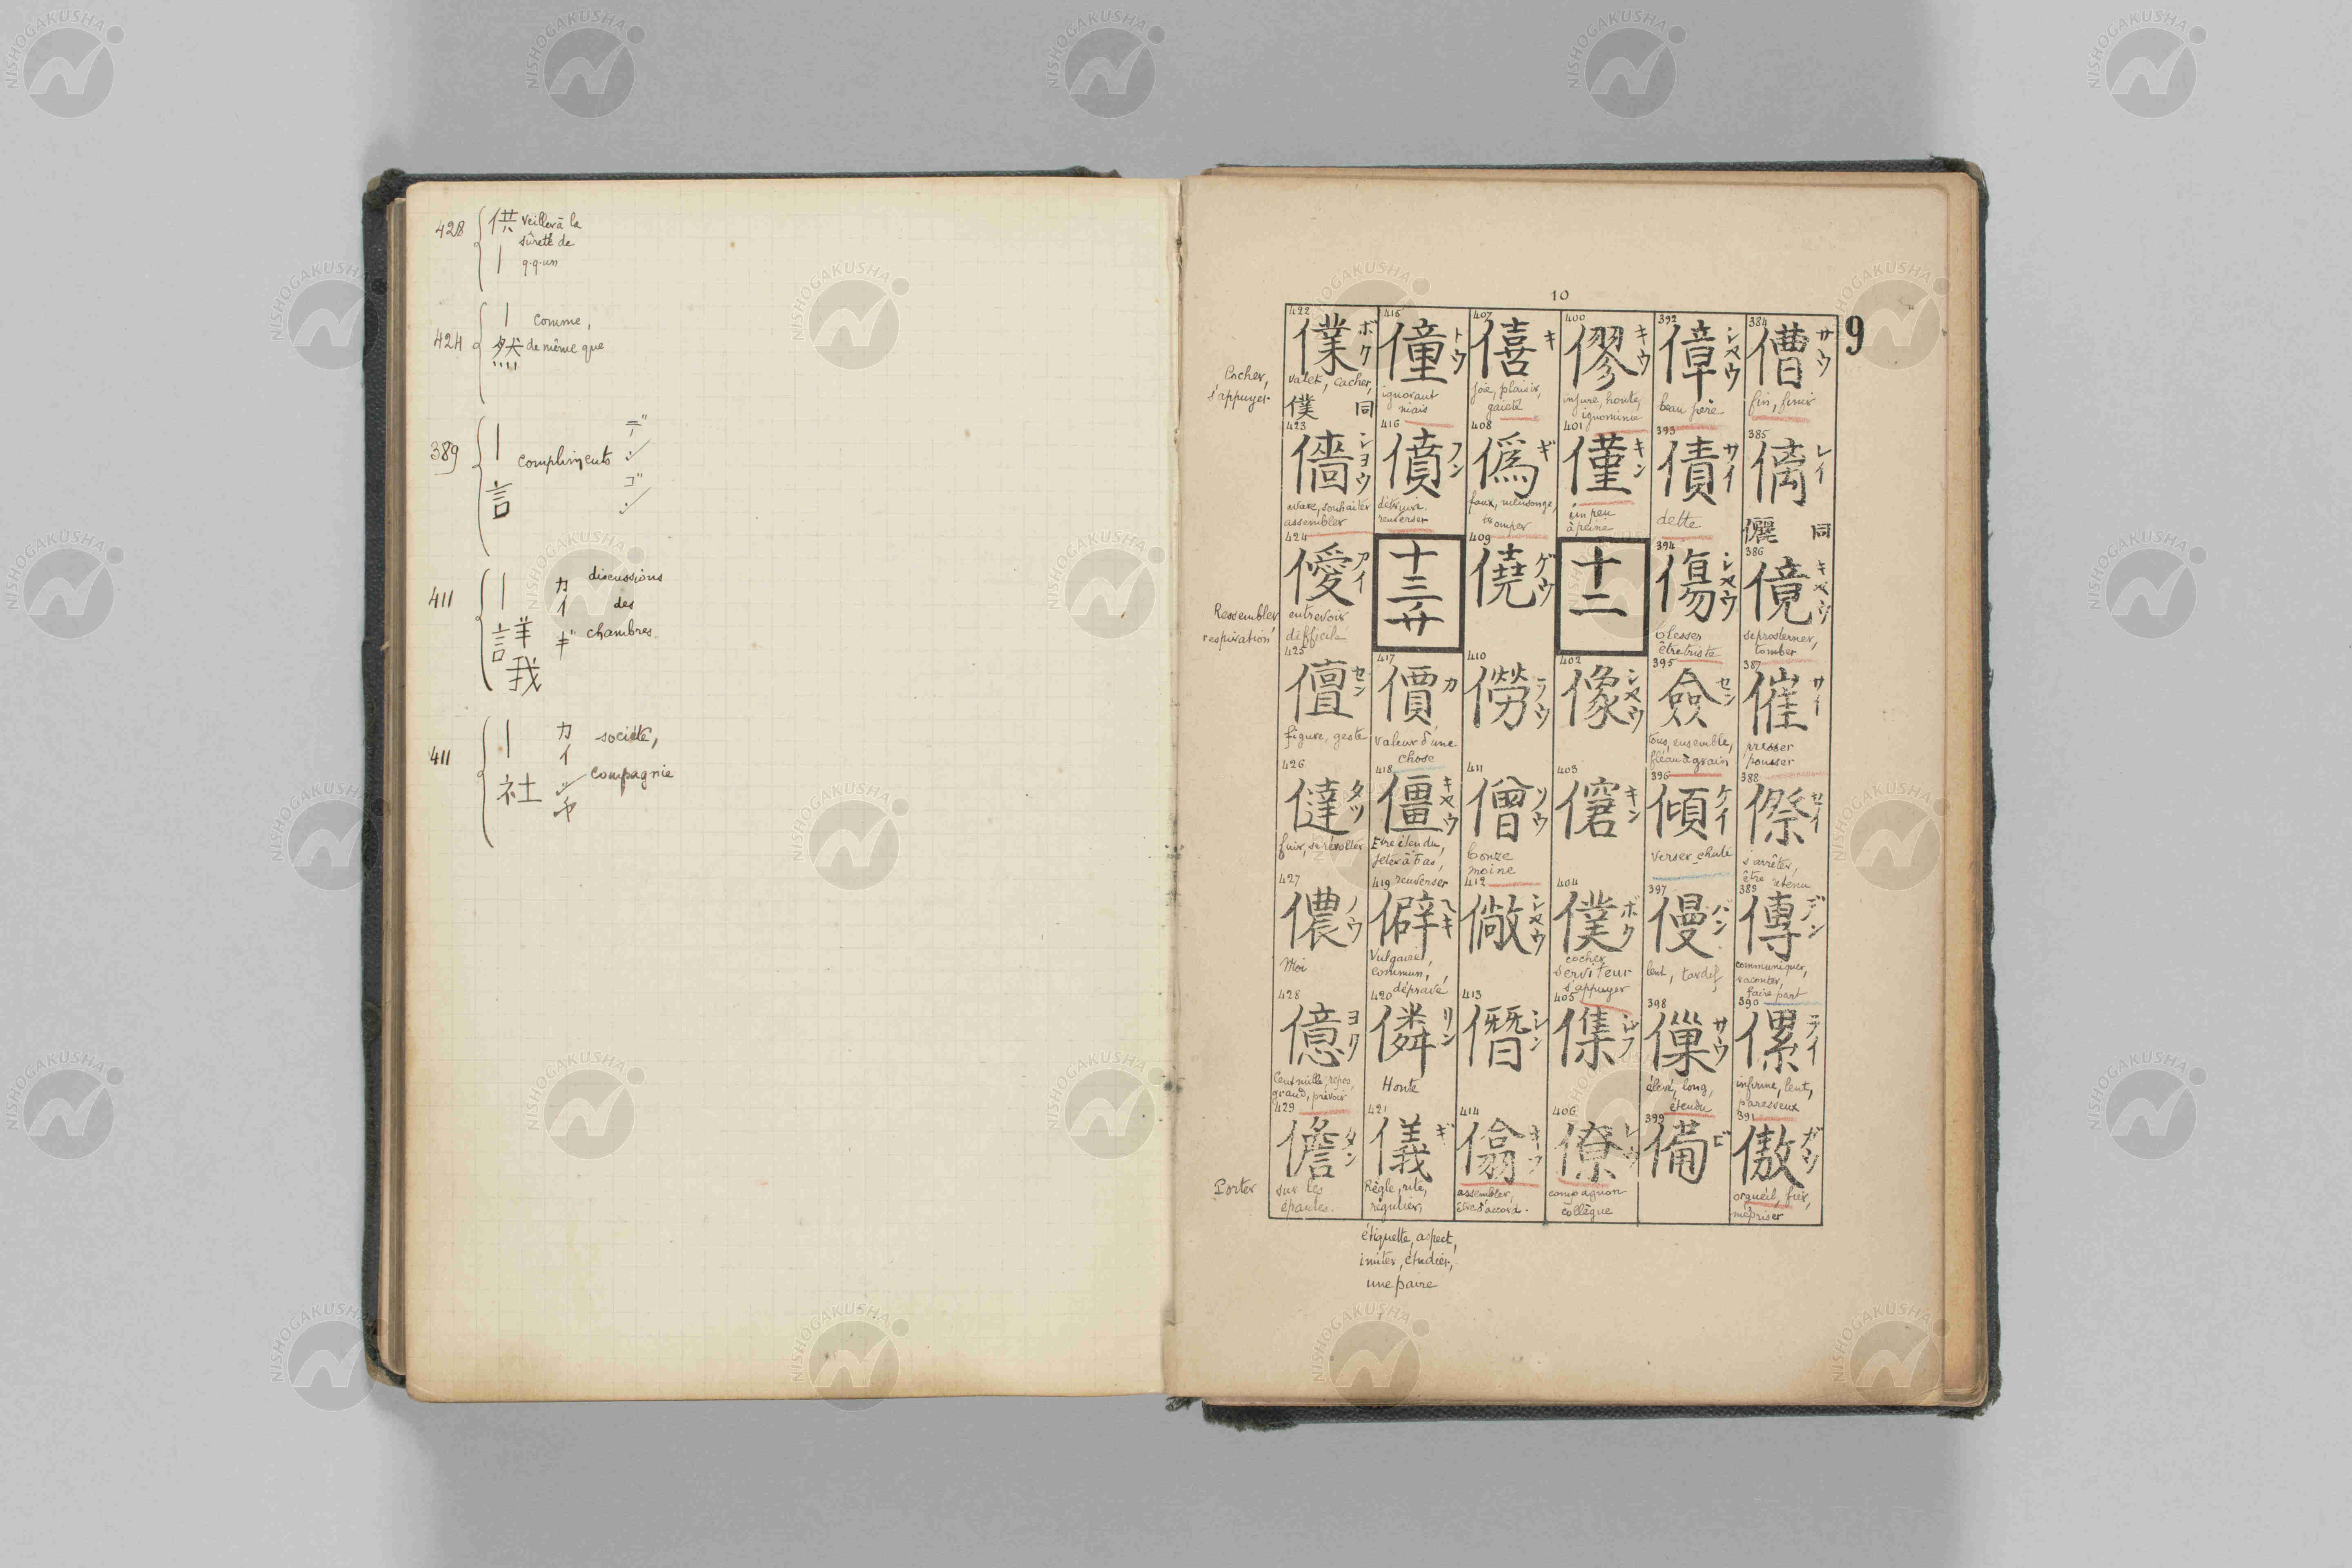 428
供 veiller à la
sûreté de
| q.q.un
424
| comme,
然 de même que
389
| compliments デン
言 ゴン
411
| カイ discussions
des
議 ギ chambres
411
| カイ société,
社 シヤ compagnie
10
9
384
僧 サウ
fin, finir
385
㒧 レイ
儷 同
386
傹 キヤウ
se prosterner,
tomber
387
催 サイ
presser
pousser
388
傺 セイ
s'arrêter,
être retenu
389
傳 デン
communiquer,
raconter,
faire part
390
儽 ライ
infirme, lent,
paresseux
391
傲 ガウ
orgueil, fier,
mépriser
392
傽 シヤウ
beau père
393
債 サイ
dette
394
傷 シヤウ
blesser
être triste
395
僉 セン
tous, ensemble,
fléau à grain
396
傾 ケイ
verser, chute
397
僈 バン
lent, tardif
398
僺 サウ
élevé, long,
étendu
399
備 ビ
400
僇 キウ
injure, honte,
ignominie
401
僅 キン
un peu
à peine
十二
402
像 シヤウ
403
僒 キン
404
僕 ボク
cocher
serviteur
s'appuyer
405
傑 ジフ
406
僚 レウ
compagnon
collègue
407
僖 キ
joie, plaisir,
gaieté
408
僞 ギ
faux, mensonge,
tromper
409
僥 ゲウ
410
僗 ラウ
411
僧 ソウ
bonze
moine
412
僘 シヤウ
413
僭 シン
414
僋 キフ
assembler,
être d'accord.
415
僮 トウ
ignorant
niais
416
僨 フン
détruire,
renverser
十三廾
417
價 カ
valeur d'une
chose
418
僵 キヤウ
Etre étendu,
jeter à bas,
renverser
419
僻 ヘキ
Vulgaire,
commun,
dépravé
420
僯 リン
Honte
421
儀 ギ
Règle, rite,
régulier,
étiquette, aspect,
imiter, étudier,
une paire
422
僕 ボク
valet, cacher,
Cocher,
s'appuyer
僕 同
423
儔 シヨウ
avare, souhaiter
assembler
424
僾 アイ
entrevoir
difficile
Ressembler
respiration
425
儃 セン
figure, geste
426
㒓 タツ
fuir, se révolter
427
儂 ノウ
Moi
428
億 ヨク
Cent mille, repos,
grand, prévoir
429
儋 タン
Porter sur les
épaules.